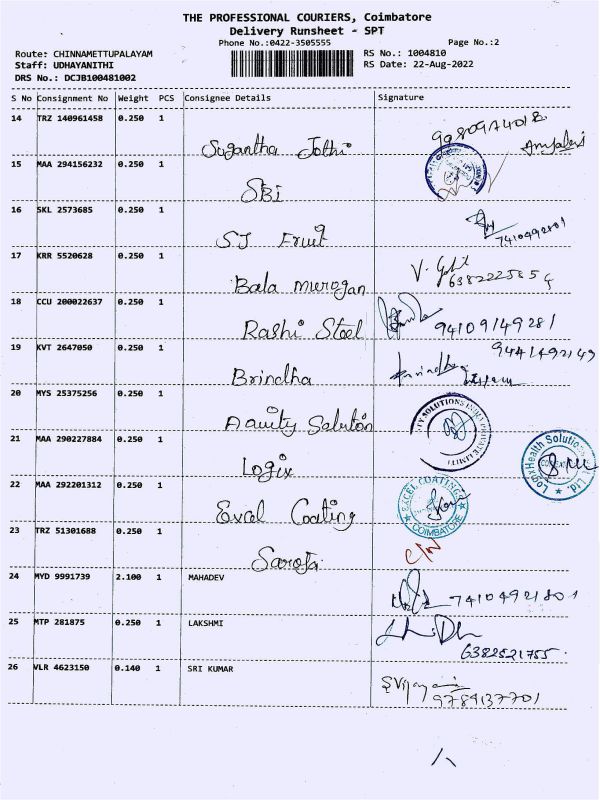 THE PROFESSIONAL COURIERS, Coimbatore
Delivery Runsheet - SPT
Phone No.:0422-3505555
Page No.:2
Route: CHINNAMETTUPALAYAM
RS No.: 1004810
Staff: UDHAYANITHI
RS Date: 22-Aug-2022
DRS No.: DCJB100481002
S No Consignment No Weight PCS Consignee Details Signature
14 TRZ 140961458 0.250 1
Sugantha Jothi
15 MAA 294156232 0.250 1
SBi
16 SKL 2573685 0.250 1
SJ Fruit 7410492801
17 KRR 5520628 0.250 1
Bala murogan V.
18 CCU 200022637 0.250 1
Rashi Steel 94109149281
19 KVT 2647050 0.250 1
Brindha
20 MYS 25375256 0.250 1
21 MAA 290227884 0.250 1
Logix LogixHealth Solutions Ltd.
22 MAA 292201312 0.250 1
Excel Coating EXCEL COATINGS COIMBATORE
23 TRZ 51301688 0.250 1
Saroja
24 MYD 9991739 2.100 1 MAHADEV
74104921801
25 MTP 281875 0.250 1 LAKSHMI
6382521755
26 VLR 4623150 0.140 1 SRI KUMAR
9784137701